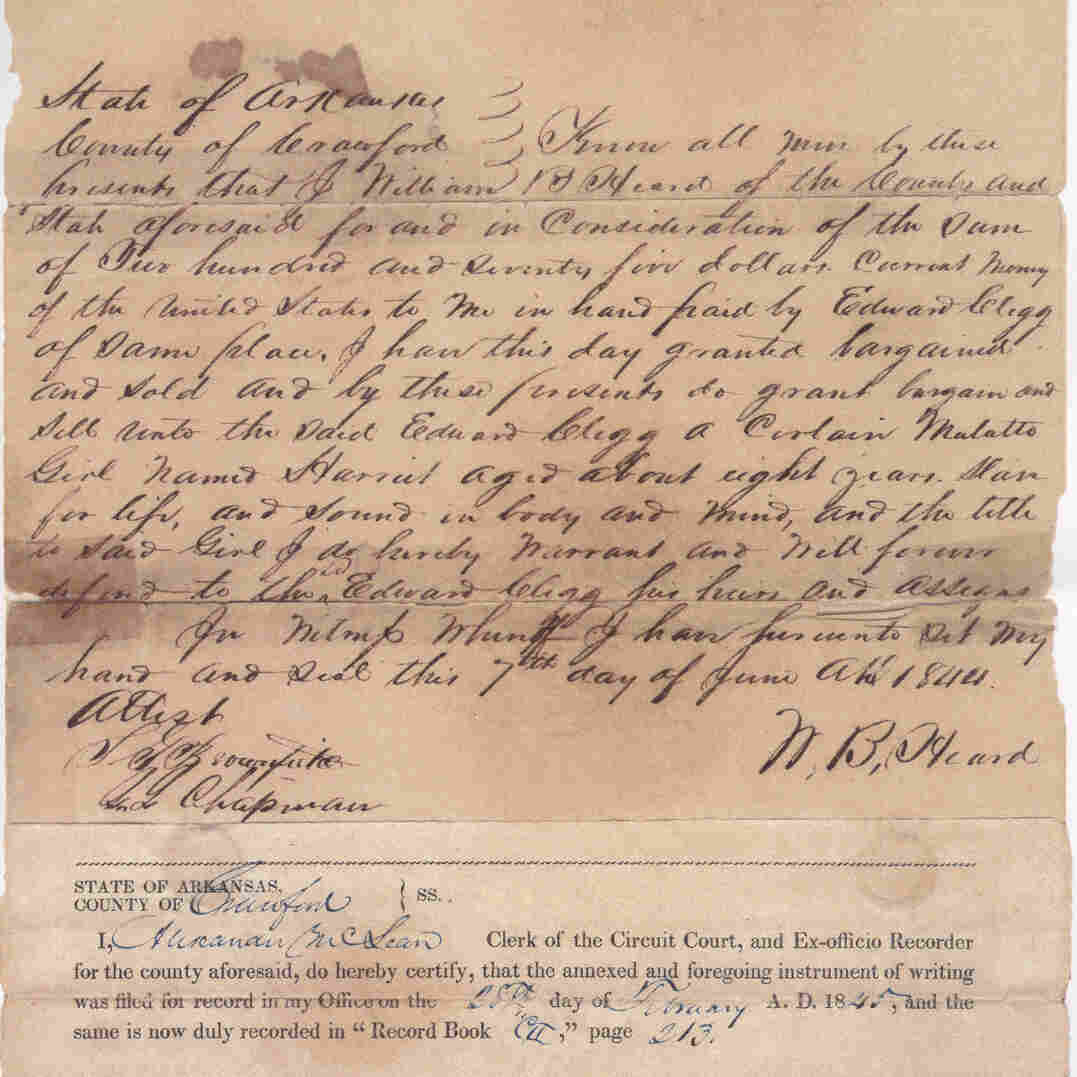 State of Arkansas
County of Crawford Know all men by these
presents that I William B Heard of the County and
State aforesaid for and in Consideration of the Sum
of Two hundred and seventy five dollars Current Money
of the United States to Me in hand paid by Edward Clegg
of Same place. I have this day granted bargained
and Sold and by these presents do grant bargain and
Sell unto the Said Edward Clegg a Certain Mulatto
Girl Named Harriet aged about eight years. Slave
for life, and Sound in body and Mind, and the title
to said Girl I do hereby Warrant and Will forever
defend to the sd Edward Clegg his heirs and assigns
In Witness Whereof I have hereunto Set My
hand and Seal this 7th day of June AD 1844.
Attest
Chapman W. B. Heard
STATE OF ARKANSAS,
COUNTY OF Crawford } SS.
I, Alexander McLean Clerk of the Circuit Court, and Ex-officio Recorder
for the county aforesaid, do hereby certify, that the annexed and foregoing instrument of writing
was filed for record in my Office on the 28th day of February A. D. 1845, and the
same is now duly recorded in "Record Book ," page 213.